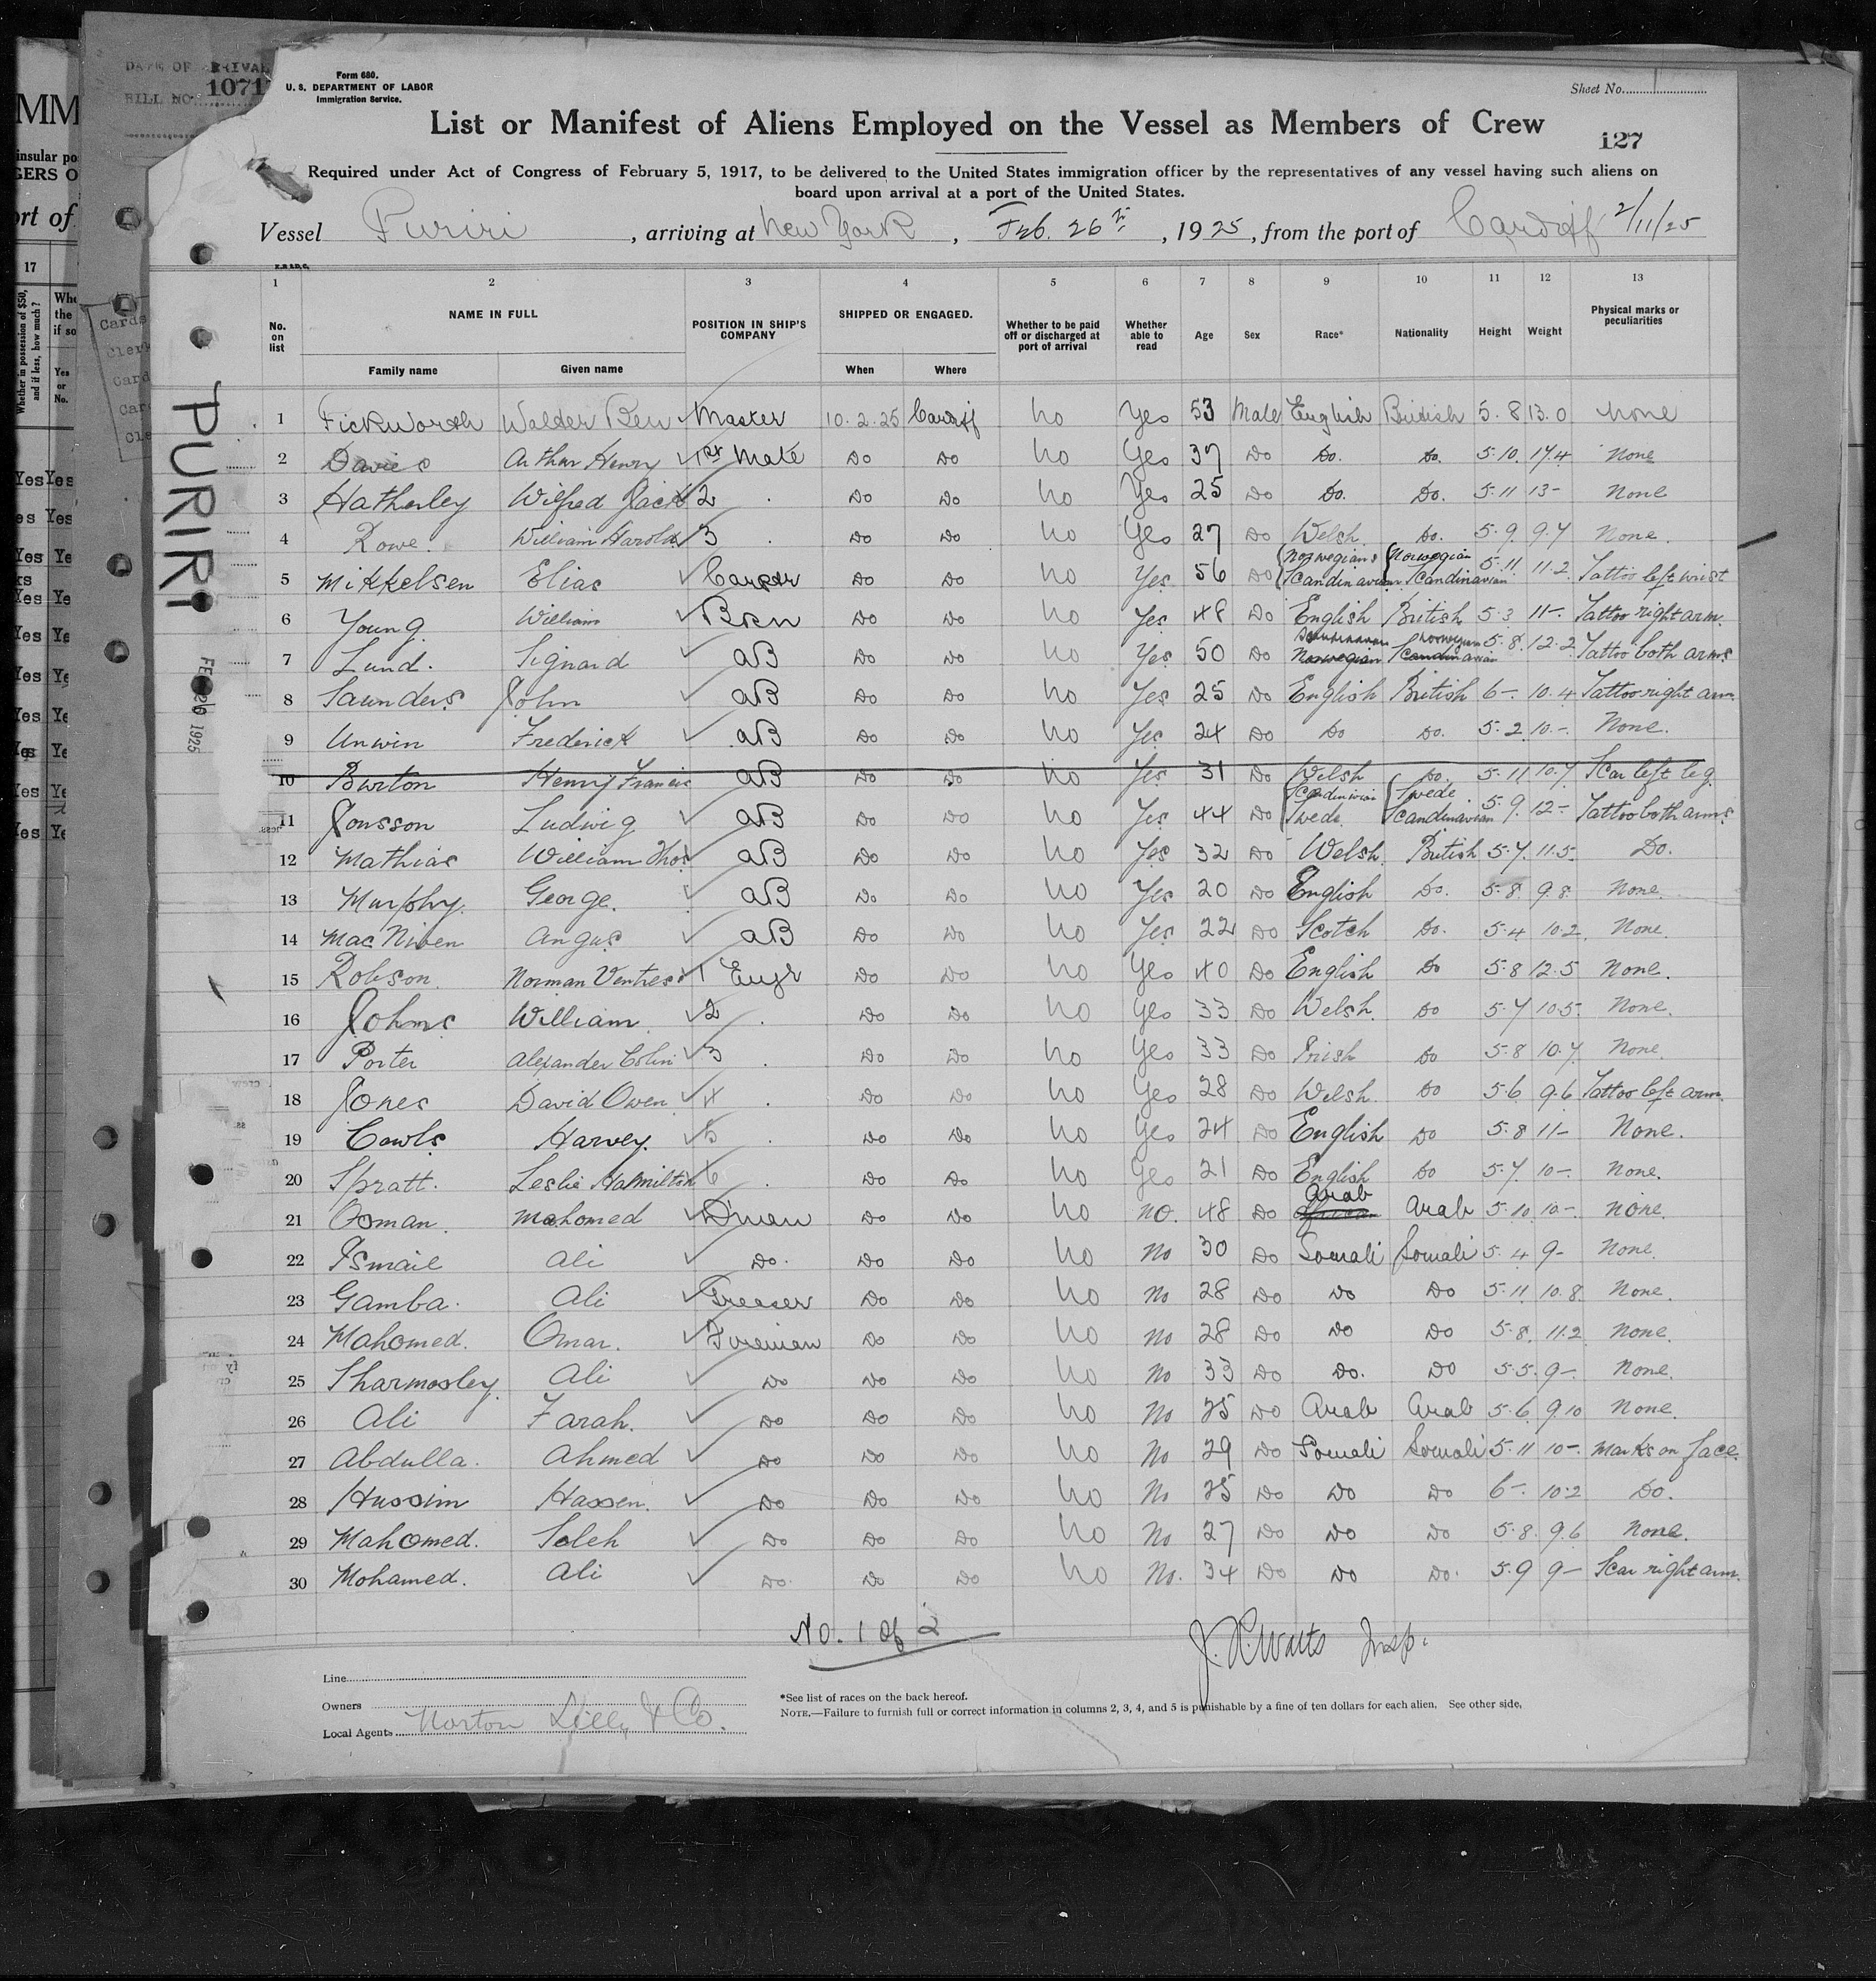 DATE OF ARRIVAL
BILL NO. 1071
Form 680.
U. S. DEPARTMENT OF LABOR
Immigration Service.
Sheet No. 1
List or Manifest of Aliens Employed on the Vessel as Members of Crew
127
Required under Act of Congress of February 5, 1917, to be delivered to the United States immigration officer by the representatives of any vessel having such aliens on
board upon arrival at a port of the United States.
Vessel Puriri, arriving at New York, Feb. 26th, 1925, from the port of Cardiff 2/11/25
1 2 3 4 5 6 7 8 9 10 11 12 13
No. on list NAME IN FULL Family name Given name POSITION IN SHIP'S COMPANY SHIPPED OR ENGAGED. When Where Whether to be paid off or discharged at port of arrival Whether able to read Age Sex Race* Nationality Height Weight Physical marks or peculiarities
PURIRI
FEB 26 1925
1 Pickworth Walder Ben Master 10.2.25 Cardiff no Yes 53 Male English British 5.8 13.0 None
2 Davies Arthur Henry 1st Mate Do Do no Yes 37 Do Do. Do. 5.10. 17.4 None
3 Hatherley Wilfred Jack 2 . Do Do no Yes 25 Do Do. Do. 5.11 13- None
4 Rowe. William Harold 3 . Do Do no Yes 27 Do Welsh. Do. 5.9. 9.7 None.
5 Mikkelsen Elias Do Do no Yes. 56 Do Norwegians Scandinavian Norwegian Scandinavian 5.11 11.2 Tattoo left wrist
6 Young. William Do Do no Yes. 48 Do English British 5.3 11-. Tattoo right arm.
7 Lund. Signard aB Do Do no Yes. 50 Do Scandinavian Norwegian Norwegian Scandinavian 5.8. 12.2 Tattoo both arms
8 Saunders. John aB Do Do no Yes. 25 Do English British 6-. 10.4 Tattoo right arm
9 Unwin Frederick aB Do Do no Yes. 24 Do Do Do. 5.2. 10.-. None.
10 Burton Henry Francis aB Do Do no Yes. 31 Do Welsh Do. 5.11 10.7 Scar left leg.
11 Jonsson Ludwig aB Do Do no Yes 44 Do Scandinavian Swede. Swede. Scandinavian 5.9. 12- Tattoo both arms
12 Mathias William Thos aB Do Do no Yes 32 Do Welsh. British 5.7. 11.5. Do.
13 Murphy. George. aB Do Do no Yes 20 Do English Do. 5.8. 9.8. None.
14 MacNiven Angus aB Do Do no Yes 22 Do Scotch Do. 5.4 10.2. None.
15 Robson. Norman Ventress 1 Engr Do Do no Yes 40 Do English Do 5.8 12.5 None.
16 Johns William 2 . Do Do no Yes 33 Do Welsh. Do 5.7 10.5. None.
17 Porter Alexander Colin 3 . Do Do no Yes 33 Do Irish Do 5.8 10.7. None.
18 Jones David Owen 4 . Do Do no Yes 28 Do Welsh. Do 5.6 9.6 Tattoo left arm.
19 Cowls Harvey. 5 . Do Do no Yes 24 Do English Do 5.8 11- None.
20 Spratt. Leslie Hamilton 6 . Do Do no Yes 21 Do English Do 5.7. 10-. None.
21 Osman. Mahomed Dman Do Do no No. 48 Do Arab African Arab 5.10 10-. None.
22 Ismail Ali Do. Do Do no No 30 Do Somali Somali 5.4 9- None.
23 Gamba. Ali Greaser Do Do no No 28 Do Do Do 5.11. 10.8. None.
24 Mahomed. Omar. Fireman Do Do no No 28 Do Do Do 5.8. 11.2 None.
25 Sharmosley. Ali Do Do Do no No 33 Do Do. Do 5.5. 9-. None.
26 Ali Farah. Do Do Do no No 25 Do Arab Arab 5.6. 9.10 None.
27 Abdulla. Ahmed Do Do Do no No 29 Do Somali Somali 5.11 10-. Marks on face.
28 Hussim Hassen. Do Do Do no No 25 Do Do Do 6-. 10.2 Do.
29 Mahomed. Seleh Do Do Do no No 27 Do Do Do 5.8. 9.6 None.
30 Mohamed. Ali Do. Do Do no No. 34 Do Do Do. 5.9 9- Scar right arm.
No. 1 of 2
J. Watts Insp.
Line
Owners
Local Agents Norton Lilly & Co.
*See list of races on the back hereof.
NOTE.—Failure to furnish full or correct information in columns 2, 3, 4, and 5 is punishable by a fine of ten dollars for each alien. See other side.